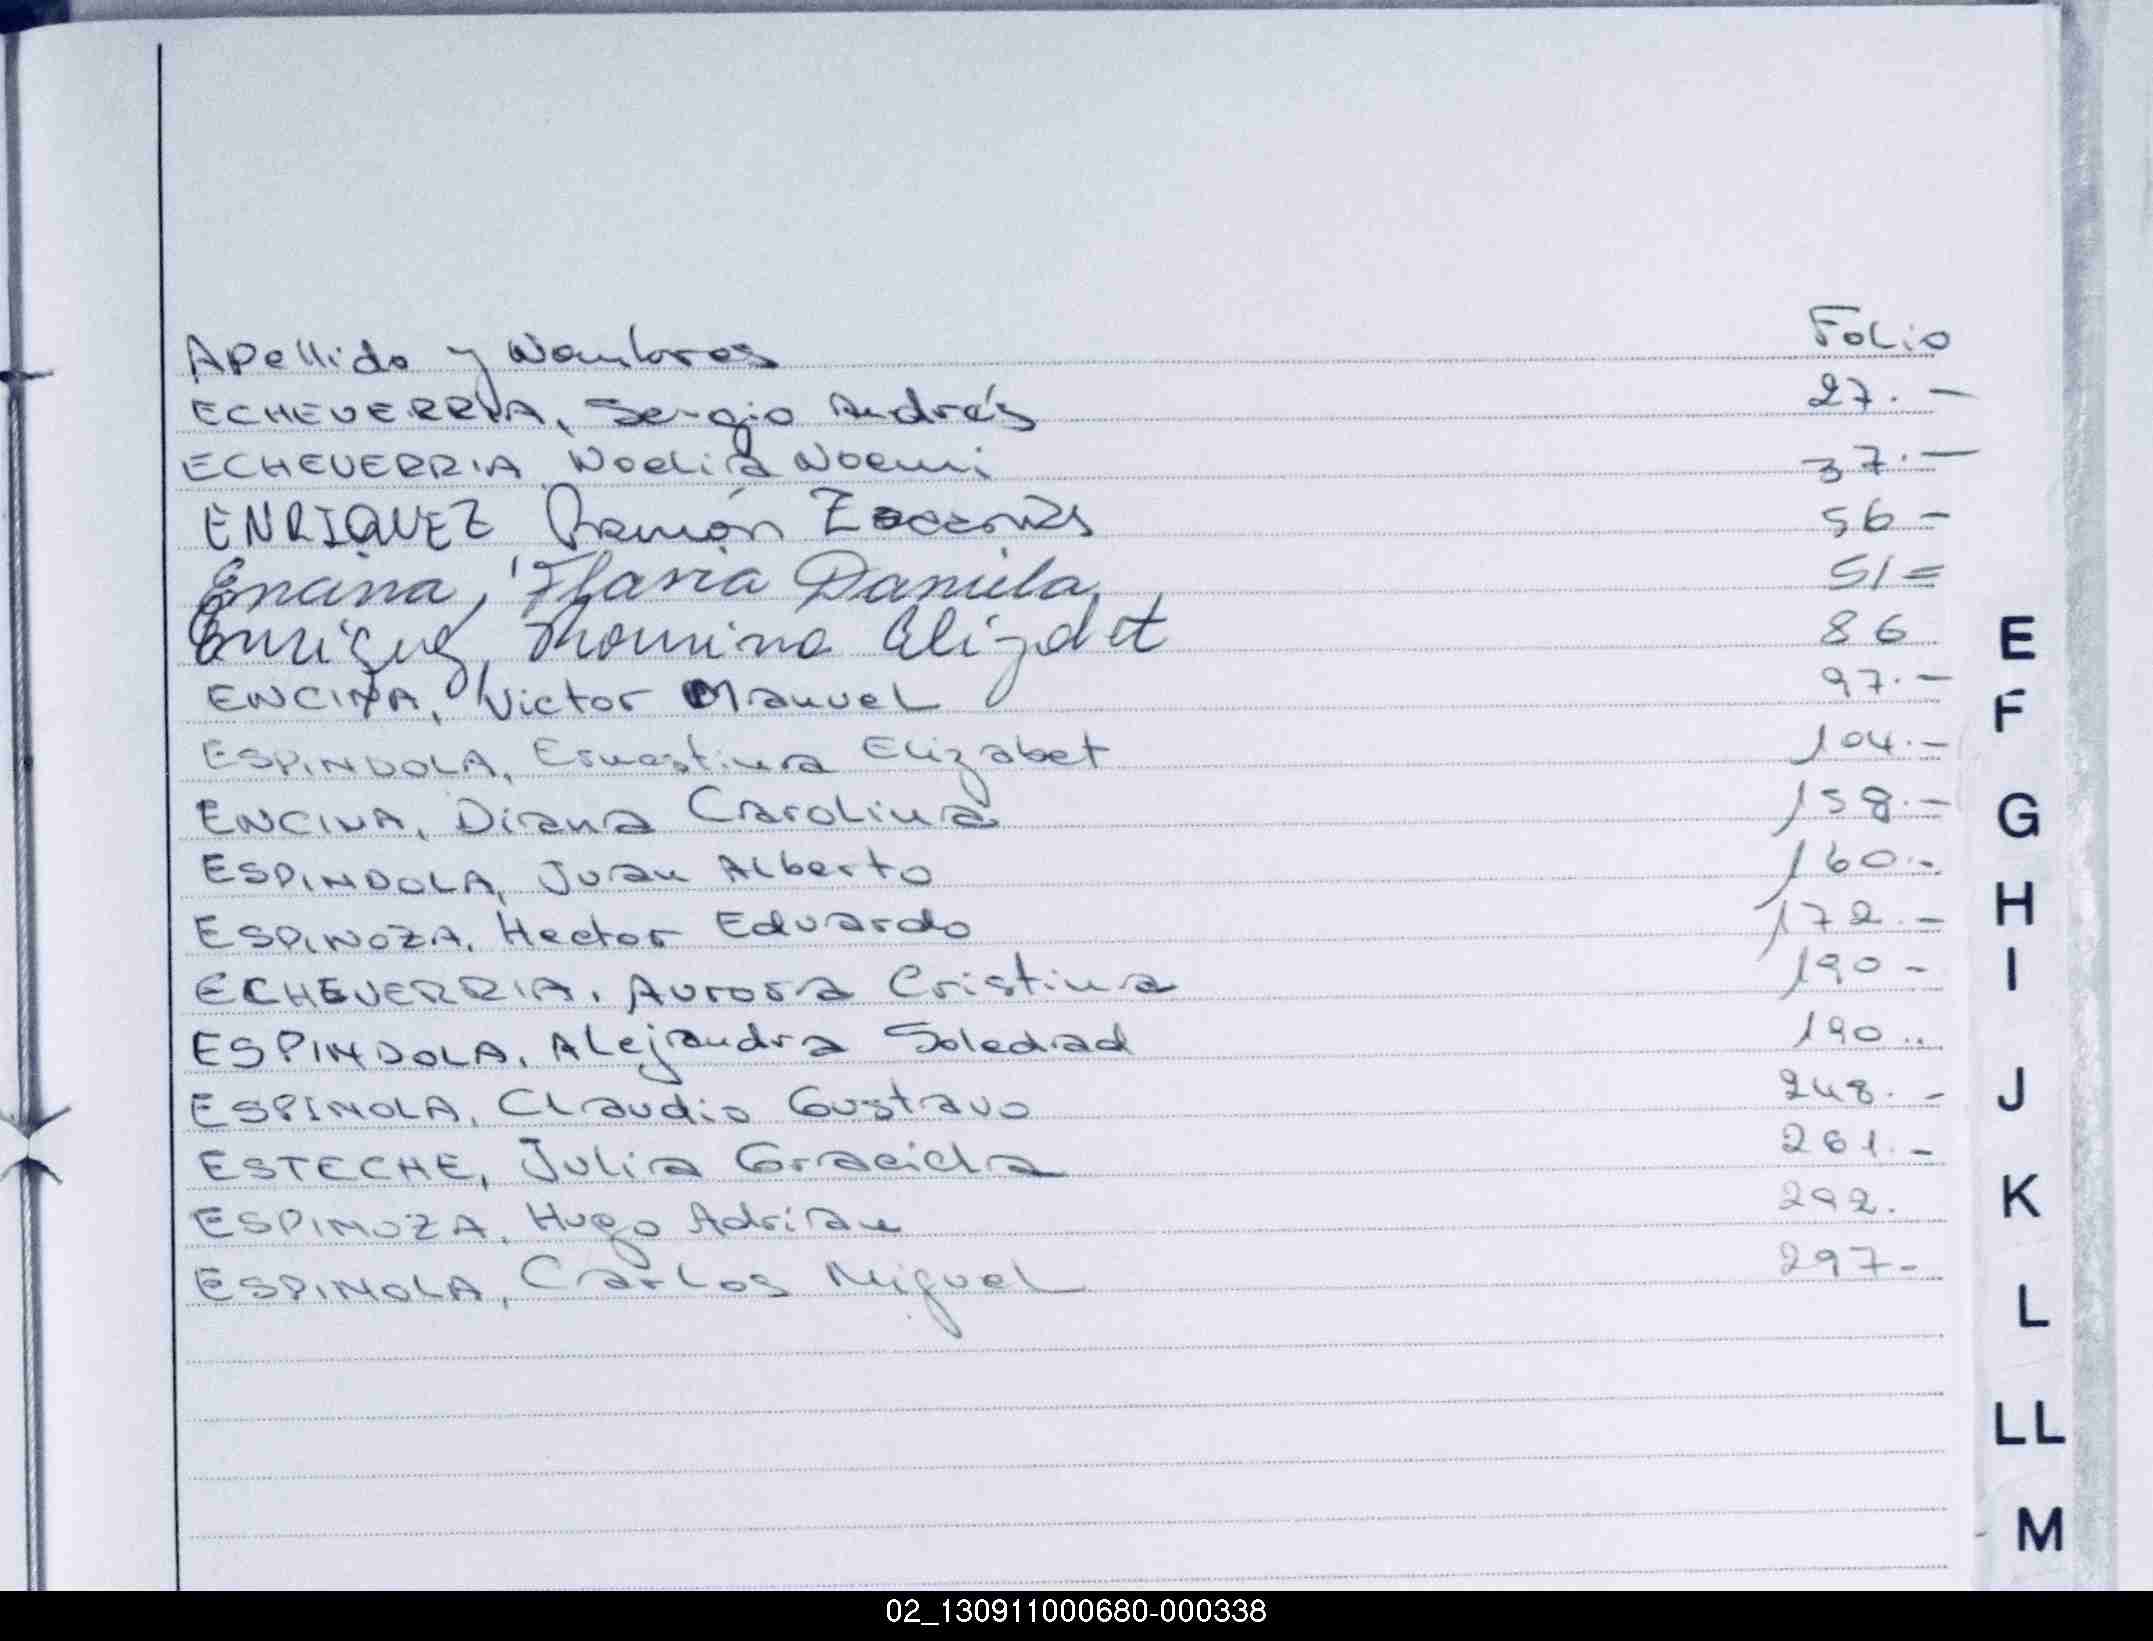 Apellido y Nombres Folio
ECHEVERRIA, Sergio Andrés 27.-
ECHEVERRIA Noelia Noemi 37.-
ENRIQUEZ Ramón 56-
Encina, Flavia Daniela 51=
Enriquez, Elizabet 86
ENCINA, Victor Manuel 97.-
ESPINDOLA, Ernestina Elizabet 104.-
ENCINA, Diana Carolina 158.-
ESPINDOLA, Juan Alberto 160..
ESPINOZA, Hector Eduardo 172.-
ECHEVERRIA, Aurora Cristina 190-
ESPINDOLA, Alejandra Soledad 190..
ESPINOLA, Claudio Gustavo 248.-
ESTECHE, Julia Graciela 261.-
ESPINOZA, Hugo Adrian 292.
ESPINOLA, Carlos Miguel 297-
E
F
G
H
I
J
K
L
LL
M
02_130911000680-000338